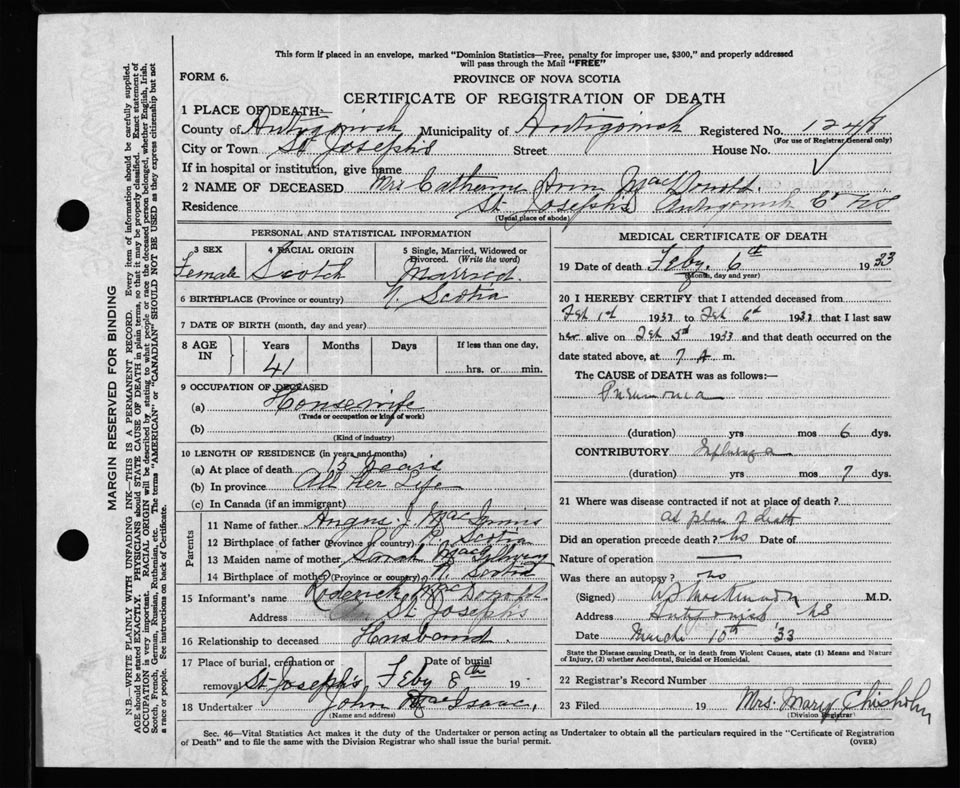 This form if placed in an envelope, marked "Dominion Statistics—Free, penalty for improper use, $300," and properly addressed
will pass through the Mail "FREE"
FORM 6.
PROVINCE OF NOVA SCOTIA
CERTIFICATE OF REGISTRATION OF DEATH
1 PLACE OF DEATH—
County of Antigonish Municipality of Antigonish Registered No. 1247
(For use of Registrar General only)
City or Town St Joseph's Street House No.
If in hospital or institution, give name
2 NAME OF DECEASED Mrs Catherine Ann MacDonald.
Residence St Joseph's Antigonish Co NS
(Usual place of abode)
PERSONAL AND STATISTICAL INFORMATION
3 SEX Female
4 RACIAL ORIGIN Scotch
5 Single, Married, Widowed or
Divorced. (Write the word)
Married.
6 BIRTHPLACE (Province or country) N. Scotia
7 DATE OF BIRTH (month, day and year)
8 AGE IN Years 41 Months Days If less than one day,
hrs. or min.
9 OCCUPATION OF DECEASED
(a) Housewife
(Trade or occupation or kind of work)
(b)
(Kind of industry)
10 LENGTH OF RESIDENCE (in years and months)
(a) At place of death years
(b) In province All Her Life
(c) In Canada (if an immigrant)
Parents
11 Name of father Angus J. MacInnis
12 Birthplace of father (Province or country) N. Scotia
13 Maiden name of mother Sarah MacGillivray
14 Birthplace of mother (Province or country) N Scotia
15 Informant's name Roderick MacDonald
Address St Joseph's
16 Relationship to deceased Husband.
17 Place of burial, cremation or Date of burial
removal St Joseph's Feby 8th 19
18 Undertaker John MacIsaac,
(Name and address)
MEDICAL CERTIFICATE OF DEATH
19 Date of death Feby. 6th 1933
(Month, day and year)
20 I HEREBY CERTIFY that I attended deceased from
Feb 1st 1933 to Feb 6th 1933 that I last saw
her alive on Feb 5th 1933 and that death occurred on the
date stated above, at 7 A m.
The CAUSE of DEATH was as follows:—
Pneumonia
(duration) yrs mos 6 dys.
CONTRIBUTORY Influenza
(duration) yrs mos 7 dys.
21 Where was disease contracted if not at place of death?
at place of death
Did an operation precede death? no Date of
Nature of operation
Was there an autopsy? no
(Signed) M.D.
Address Antigonish NS
Date March 10th '33
State the Disease causing Death, or in death from Violent Causes, state (1) Means and Nature
of Injury, (2) whether Accidental, Suicidal or Homicidal.
22 Registrar's Record Number
23 Filed 19 Mrs. Mary Chisholm
(Division Registrar)
Sec. 46—Vital Statistics Act makes it the duty of the Undertaker or person acting as Undertaker to obtain all the particulars required in the "Certificate of Registration
of Death" and to file the same with the Division Registrar who shall issue the burial permit.
(OVER)
MARGIN RESERVED FOR BINDING
N.B.—WRITE PLAINLY WITH UNFADING INK—THIS IS A PERMANENT RECORD. Every item of information should be carefully supplied.
AGE should be stated EXACTLY. PHYSICIANS should STATE CAUSE OF DEATH in plain terms, so that it may be properly classified. Exact statement of
OCCUPATION is very important. RACIAL ORIGIN will be described by stating to what people or race the deceased person belonged, whether English, Irish,
Scotch, French, German, Russian, Ruthenian, etc. The terms "AMERICAN" or "CANADIAN" SHOULD NOT BE USED as they express citizenship but not
a race or people. See instructions on back of Certificate.